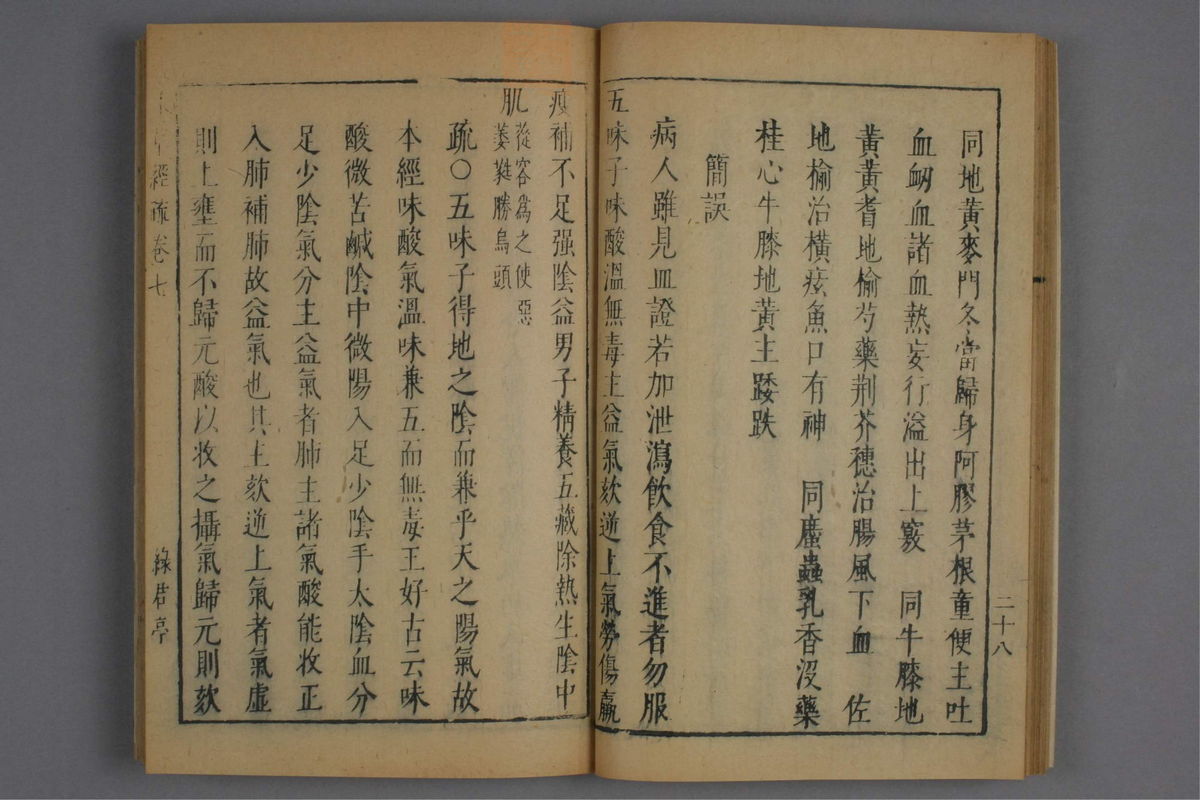 同地黃麥門冬當歸身阿膠茅根童便主吐
血衂血諸血熱妄行溢出上竅　同牛膝地
黃黃耆地榆芍藥荆芥穗治腸風下血　佐
地榆治橫痃魚口有神　同䗪蟲乳香沒藥
桂心牛膝地黃主踒跌
簡誤
病人雖見血證若加泄瀉飲食不進者勿服
五味子味酸溫無毒主益氣欬逆上氣勞傷羸
二十八
瘦補不足强陰益男子精養五藏除熱生陰中
肌
蓯容爲之使惡
萎蕤勝烏頭
疏○五味子得地之陰而兼乎天之陽氣故
本經味酸氣溫味兼五而無毒王好古云味
酸微苦鹹陰中微陽入足少陰手太陰血分
足少陰氣分主益氣者肺主諸氣酸能收正
入肺補肺故益氣也其主欬逆上氣者氣虛
則上壅而不歸元酸以收之攝氣歸元則欬
經疏卷七
綠君亭